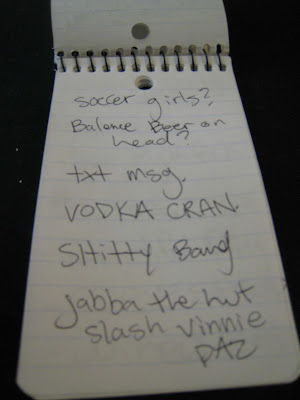 soccer girls?
Balance Beer on
head?
txt msg.
VODKA CRAN.
SHitty Band
Jabba the hut
slash vinnie
PAZ